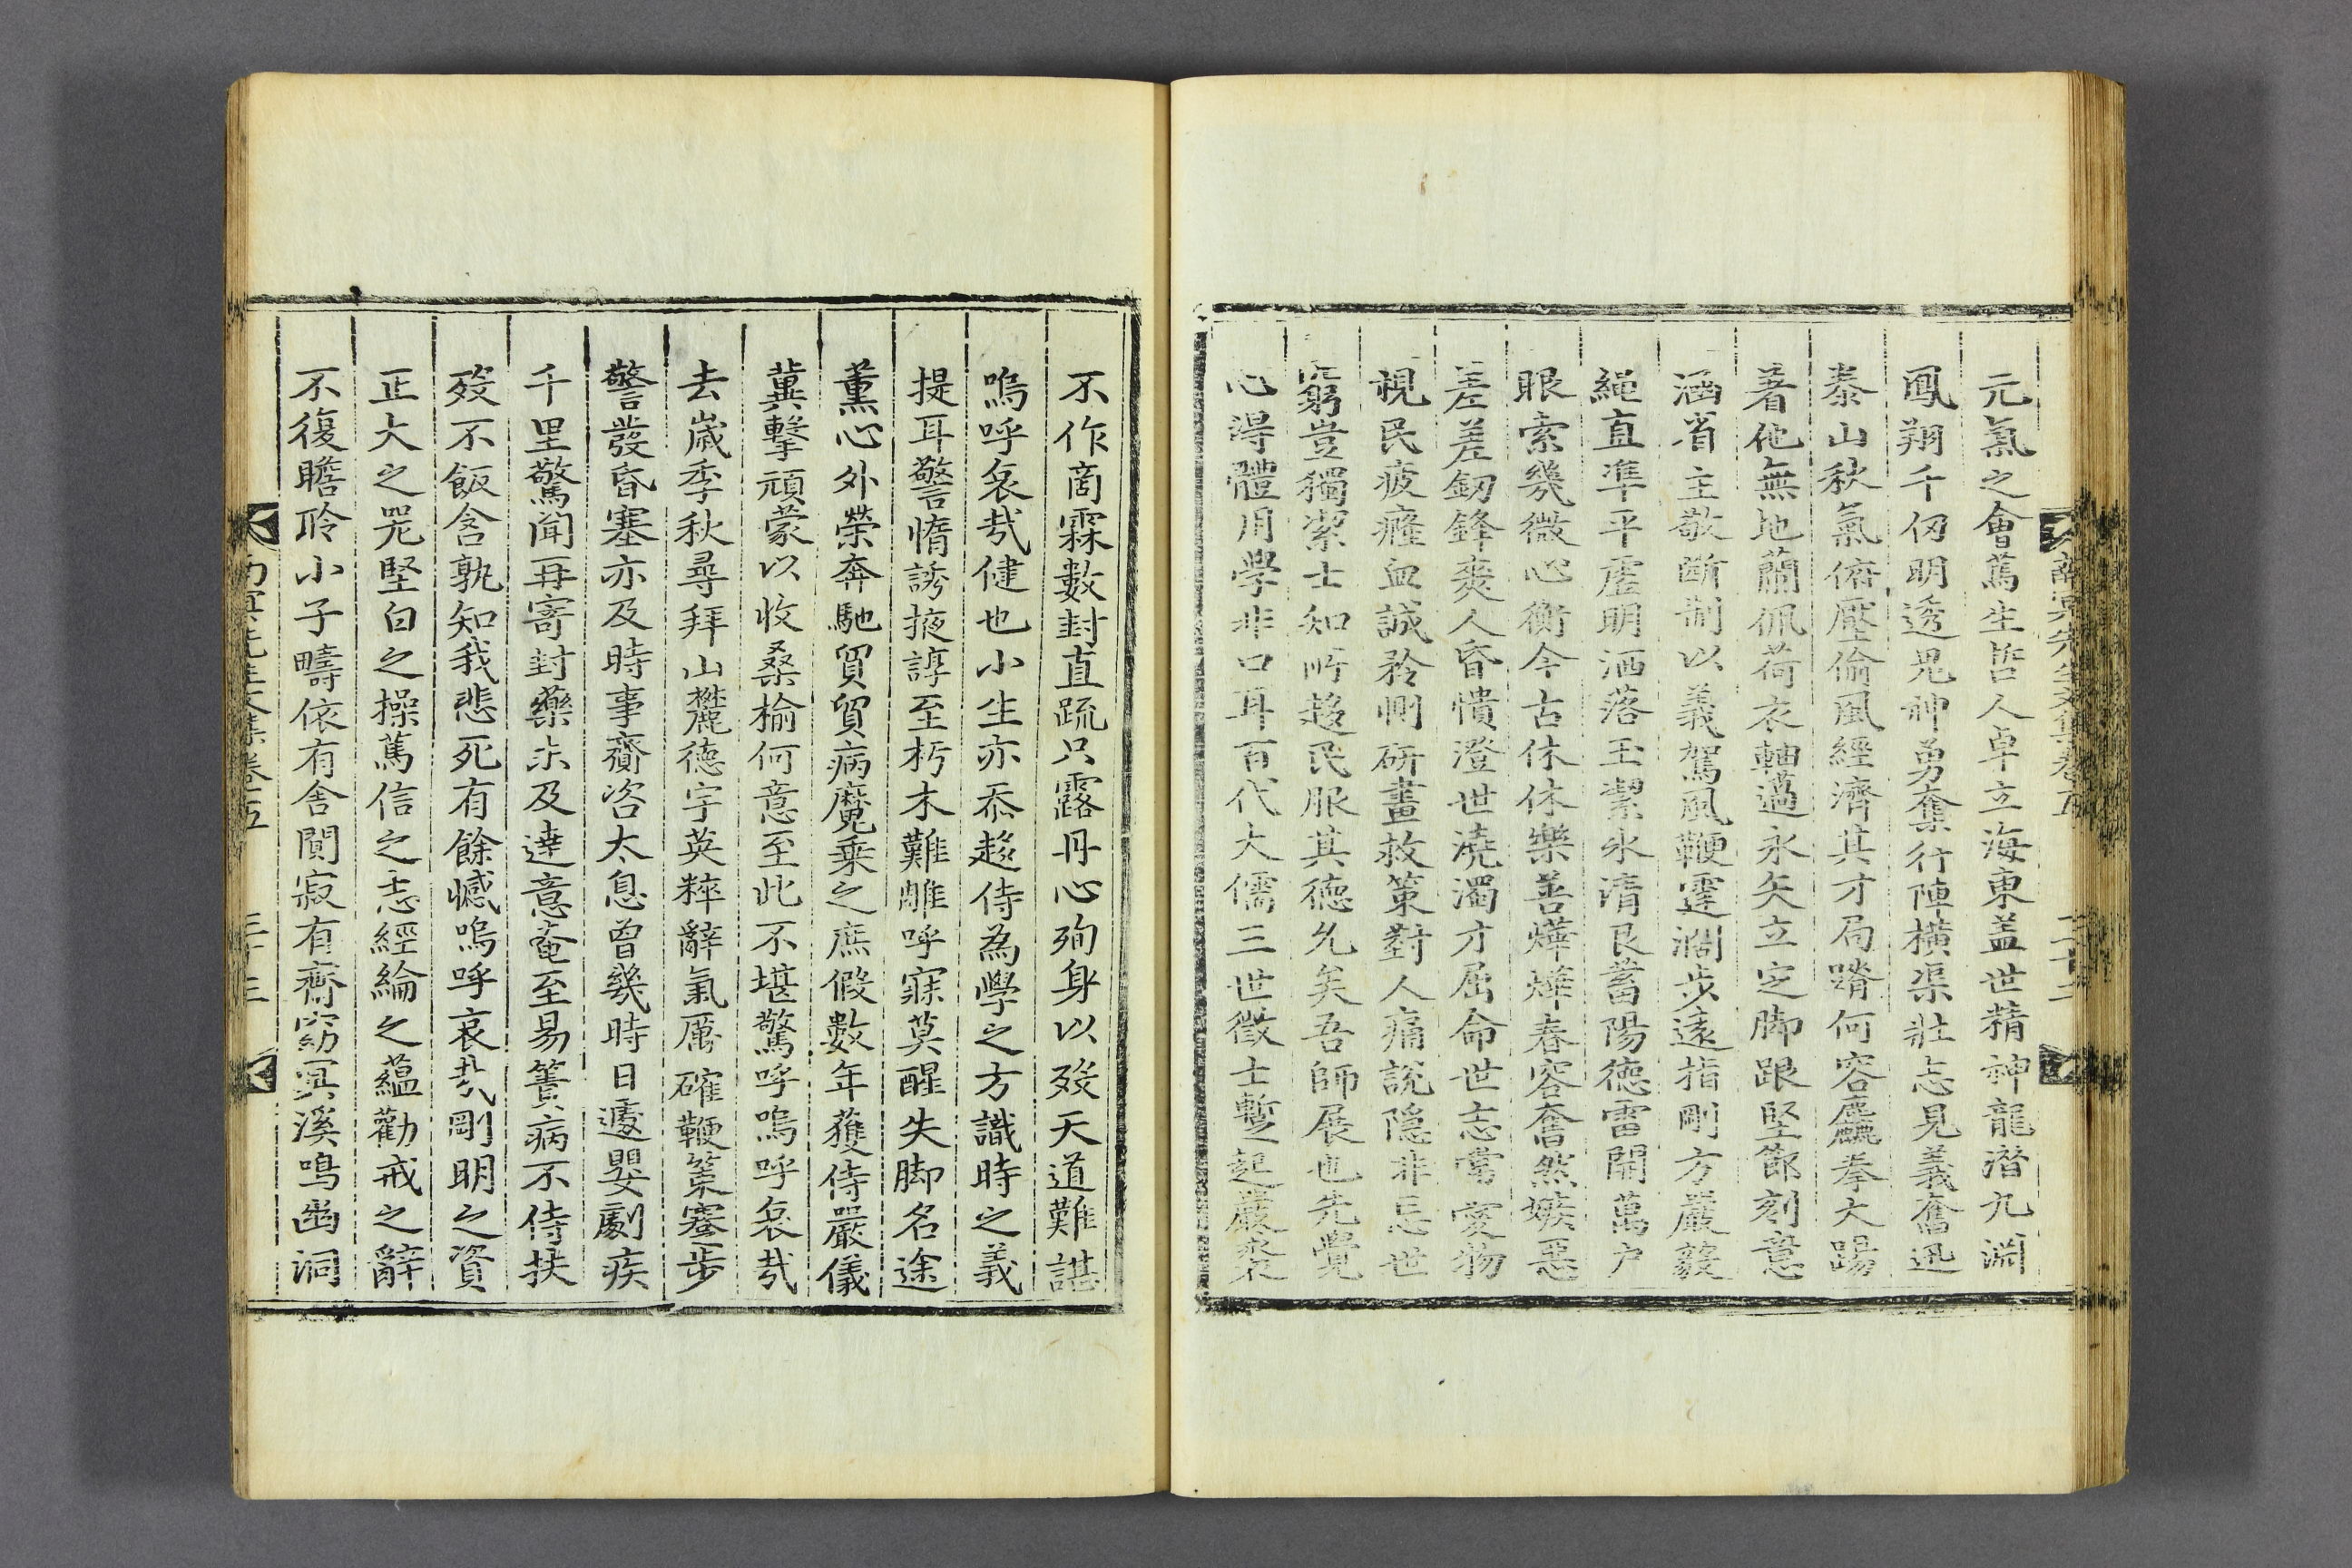 元氣之會篤生哲人卓立海東盖世精神龍潛九淵
鳳翔千仞明透鬼神勇奪行陣橫渠壯志見義奮迅
泰山秋氣俯壓偷風經濟其才局蹐何容麤拳大踢
着他無地蘭佩荷衣軸邁永矢立定脚跟堅節刻意
涵省主敬斷制以義駕風鞭霆濶步遠指剛方嚴毅
繩直準平虛明洒落玉潔氷清艮蓄陽德雷開萬户
眼索幾微心衡今古休休樂善燁燁春容奮然嫉惡
差差釼鋒爽人昏憒澄世澆濁才屈命世志常愛物
視民疲癃血誠矜惻硏畫救策對人痛說隱非忘世
窮豈獨潔士知所趍民服其德允矣吾師展也先覺
心得體用學非口耳百代大儒三世徵士暫起嚴衮
不作啇霖數封直䟽只露丹心殉身以殁天道難諶
嗚呼哀㢤健也小生亦忝趍侍為學之方識時之義
提耳警惰誘掖諄至朽木難雕呼寐莫醒失脚名途
薰心外榮奔馳貿貿病魔乗之庶假數年獲侍嚴儀
冀擊頑蒙以收桑榆何意至此不堪驚呼嗚呼哀㢤
去歲季秋尋拜山麓德宇英粹辭氣厲確鞭策蹇步
警發昏塞亦及時事齎咨太息曾幾時日遽嬰劇疾
千里驚聞再寄封藥未及達意奄至易簀病不侍扶
殁不飯含孰知我悲死有餘憾嗚呼哀㢤剛明之資
正大之器堅白之操篤信之志經綸之蘊勸戒之辭
不復瞻聆小子疇依有舍闃寂有齋窈冥溪鳴幽洞
南冥先生文集卷五 三十三